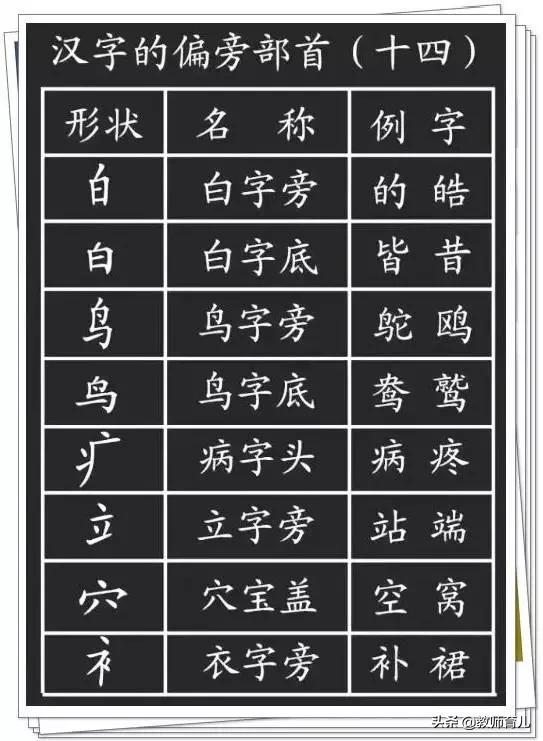 汉字的偏旁部首（十四）
形状 名 称 例 字
白 白字旁 的 皓
白 白字底 皆 昔
鸟 鸟字旁 鸵 鸥
鸟 鸟字底 鸯 鹫
疒 病字头 病 疼
立 立字旁 站 端
穴 穴宝盖 空 窝
衤 衣字旁 补 裙
头条 @教师育儿